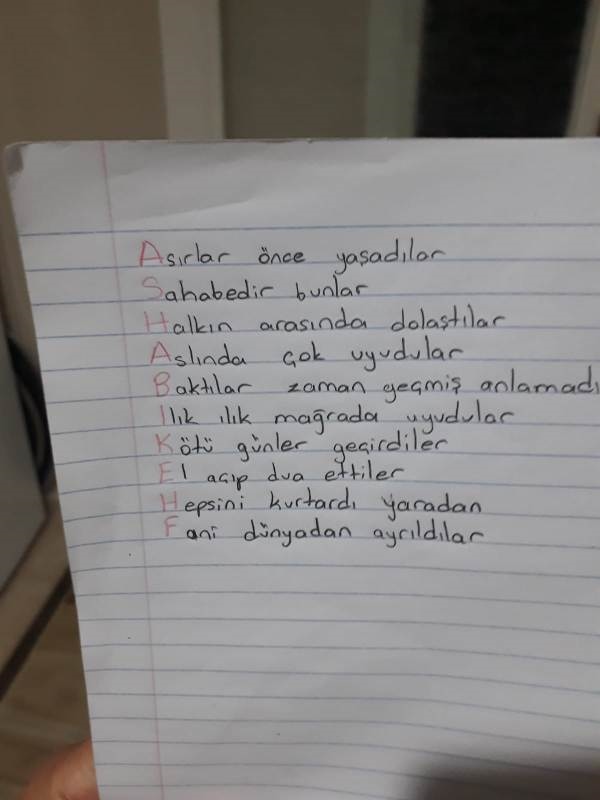 Asırlar önce yaşadılar
Sahabedir bunlar
Halkın arasında dolaştılar
Aslında çok uyudular
Baktılar zaman geçmiş anlamadı
Ilık ılık mağrada uyudular
Kötü günler geçirdiler
El açıp dua ettiler
Hepsini kurtardı yaradan
Fani dünyadan ayrıldılar